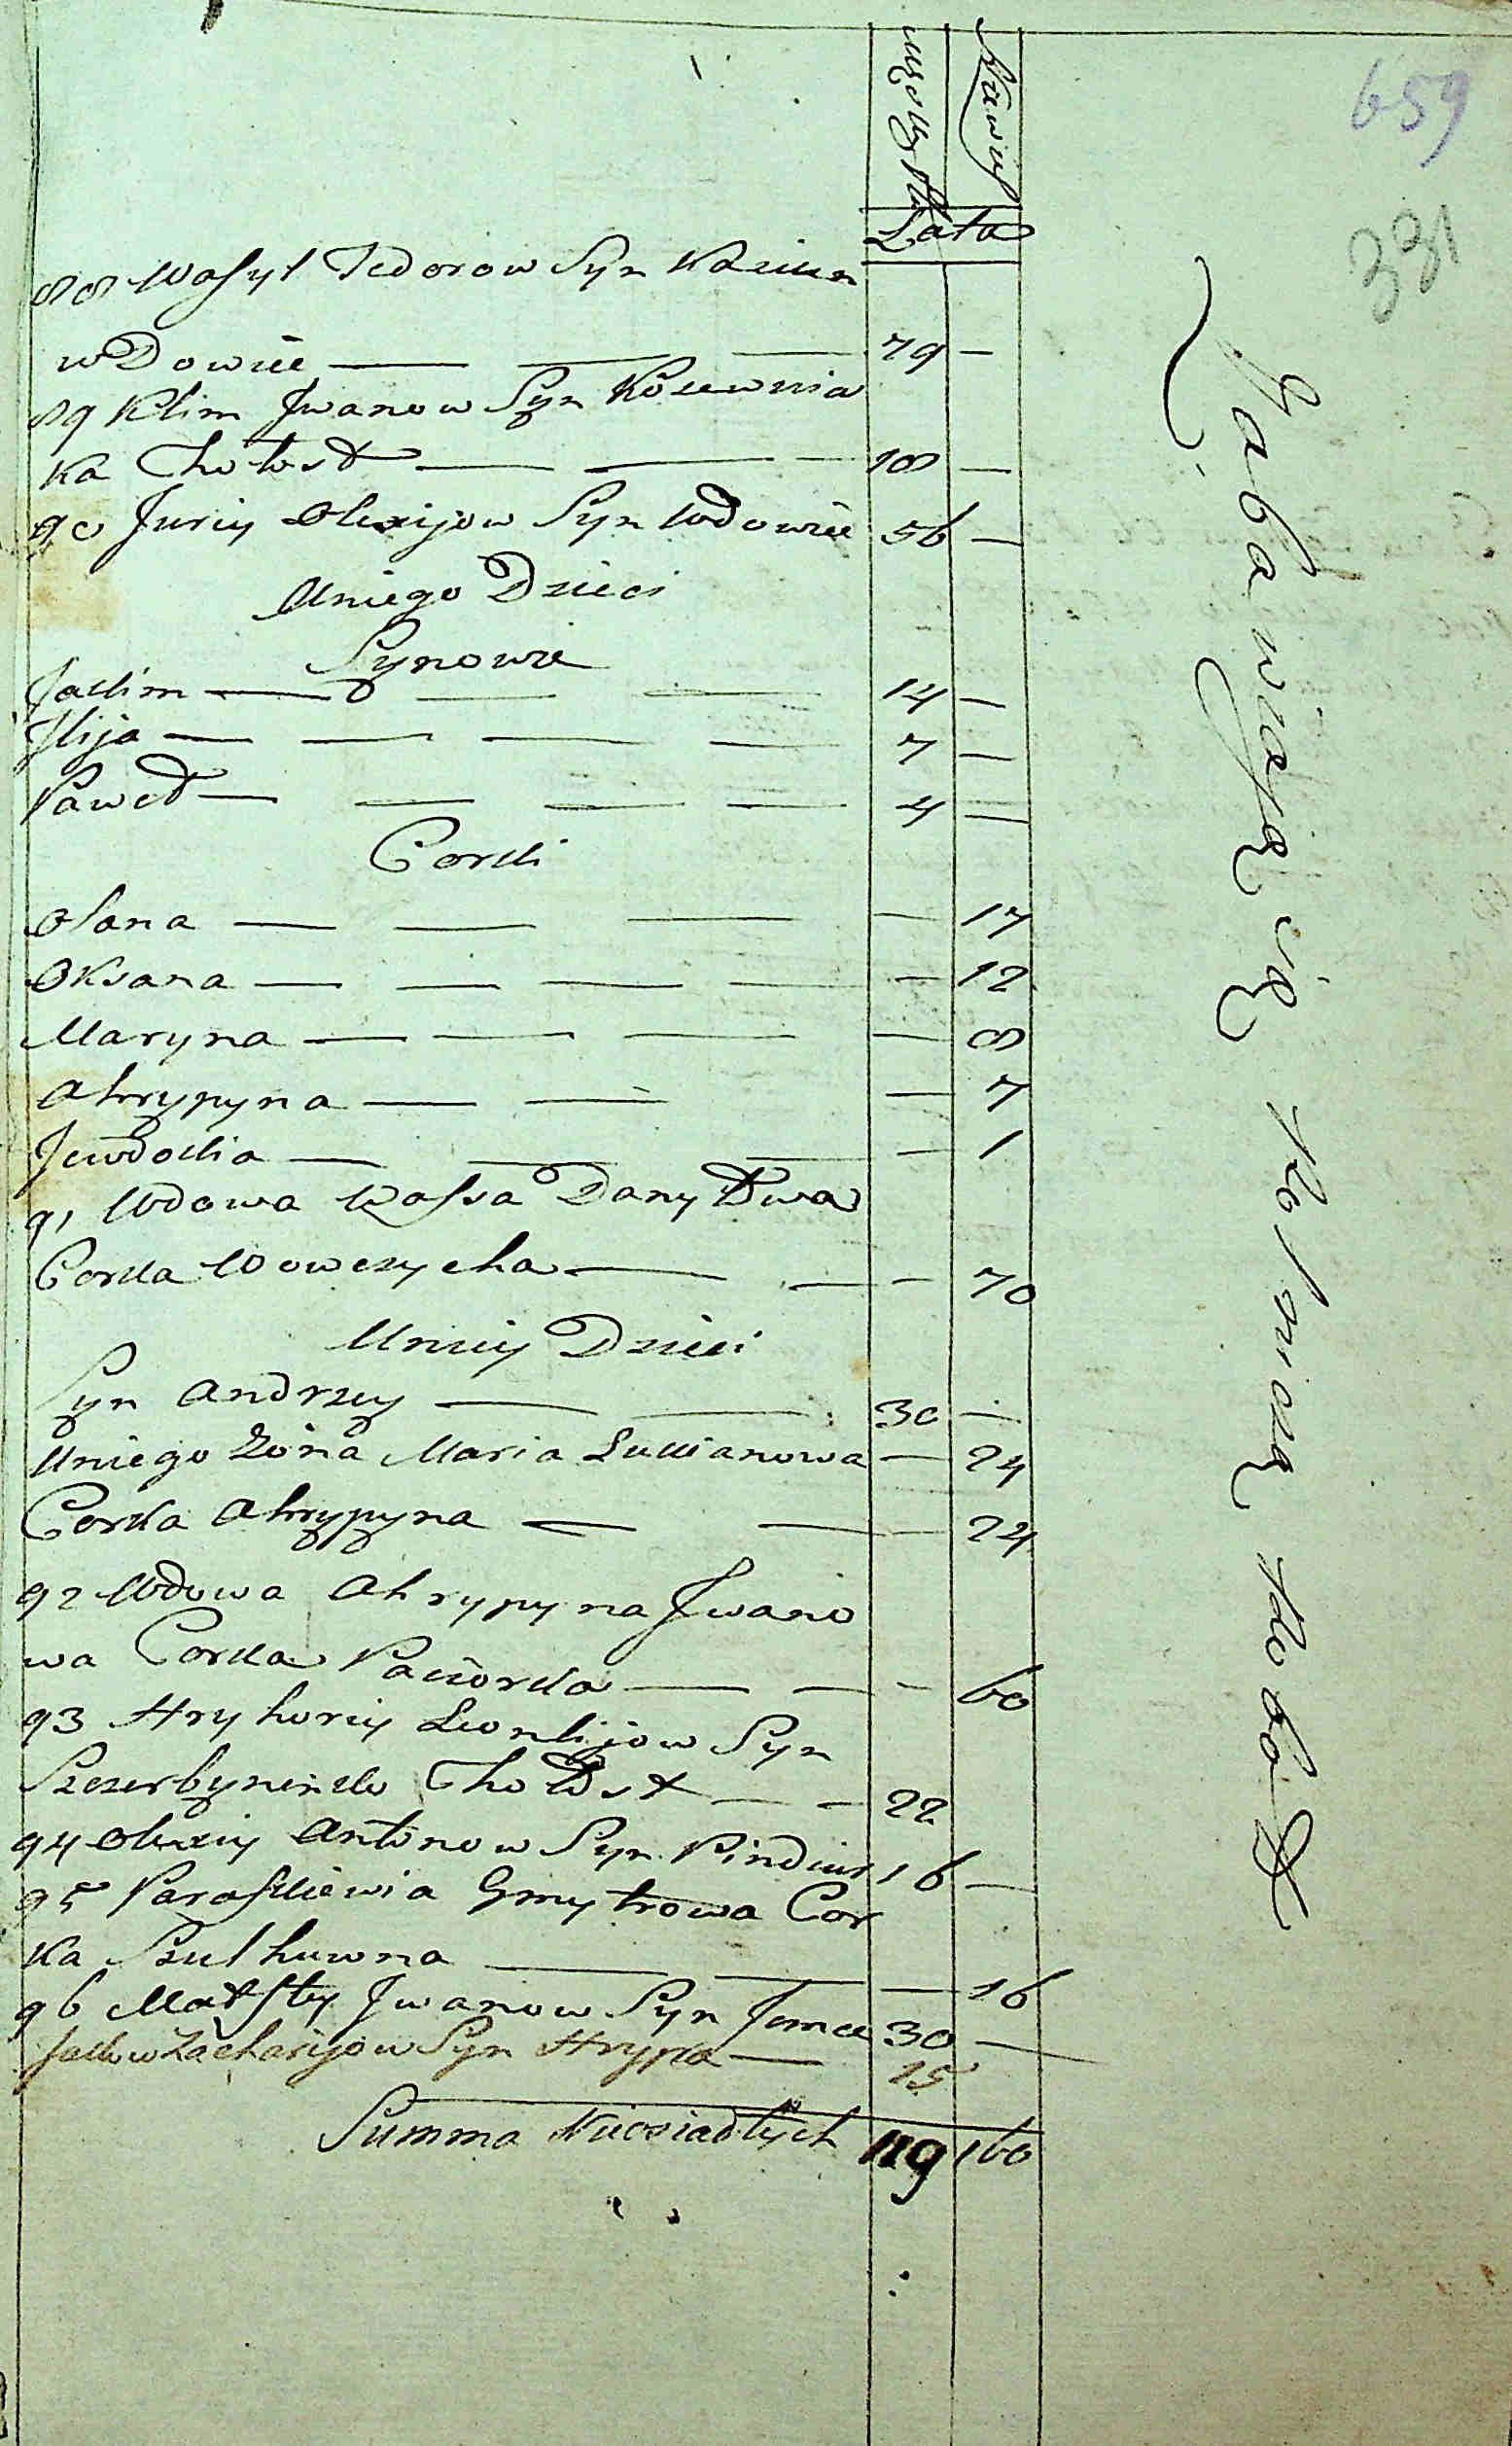 659
331
Męskiey Płci
Lata
88 Wasyl Fedorow Syn
wDowiec — — — 79 —
89 Klim Jwanow Syn
ka Chołost — — — 18 —
90 Juriy Olexijow Syn Wdowiec 56 —
Uniego Dzieci
Synowie
Jakim — — — 14 —
Jlija — — — — 7 —
Paweł — — — — 4 —
Corki
Olana — — — — 17
Oksana — — — — — 12
Maryna — — — — 8
Ahrypyna — — — 7
Jewdokia — — — — 1
91 Wdowa Wassa Danyłowa
Corka Wowczycha — — — 70
Uniey Dzieci
Syn Andrzey — — 30 —
Uniego Żona Maria Lukianowa — 24
Corka Ahrypyna — — — 24
92 Wdowa Ahrypyna Jwano
wa Corka Paciorka — — — 60
93 Hryhoriy Leontijow Syn
Szczerbynenko Chołost — — 22
94 Olexiy Antonow Syn Pindiur 16 —
95 Paraskiewia Dmytrowa Cor
ka Szulhuwna — — — 16
96 Matfiey Jwanow Syn 30 —
Jakow Zacharijow Syn Hrypa — 15
Summa Nieosiadłych 119 160
Zabawiaią się rolniczą robotą